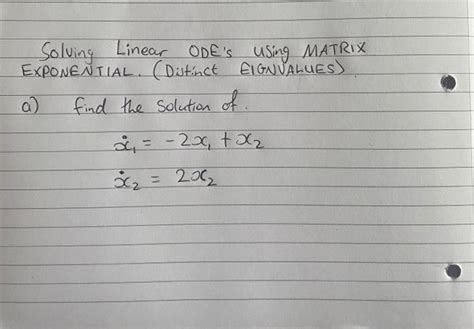 Solving Linear ODE's using MATRIX
EXPONENTIAL. (Distinct EIGNVALUES).
a) find the solution of.
ẋ₁ = -2x₁ + x₂
ẋ₂ = 2x₂